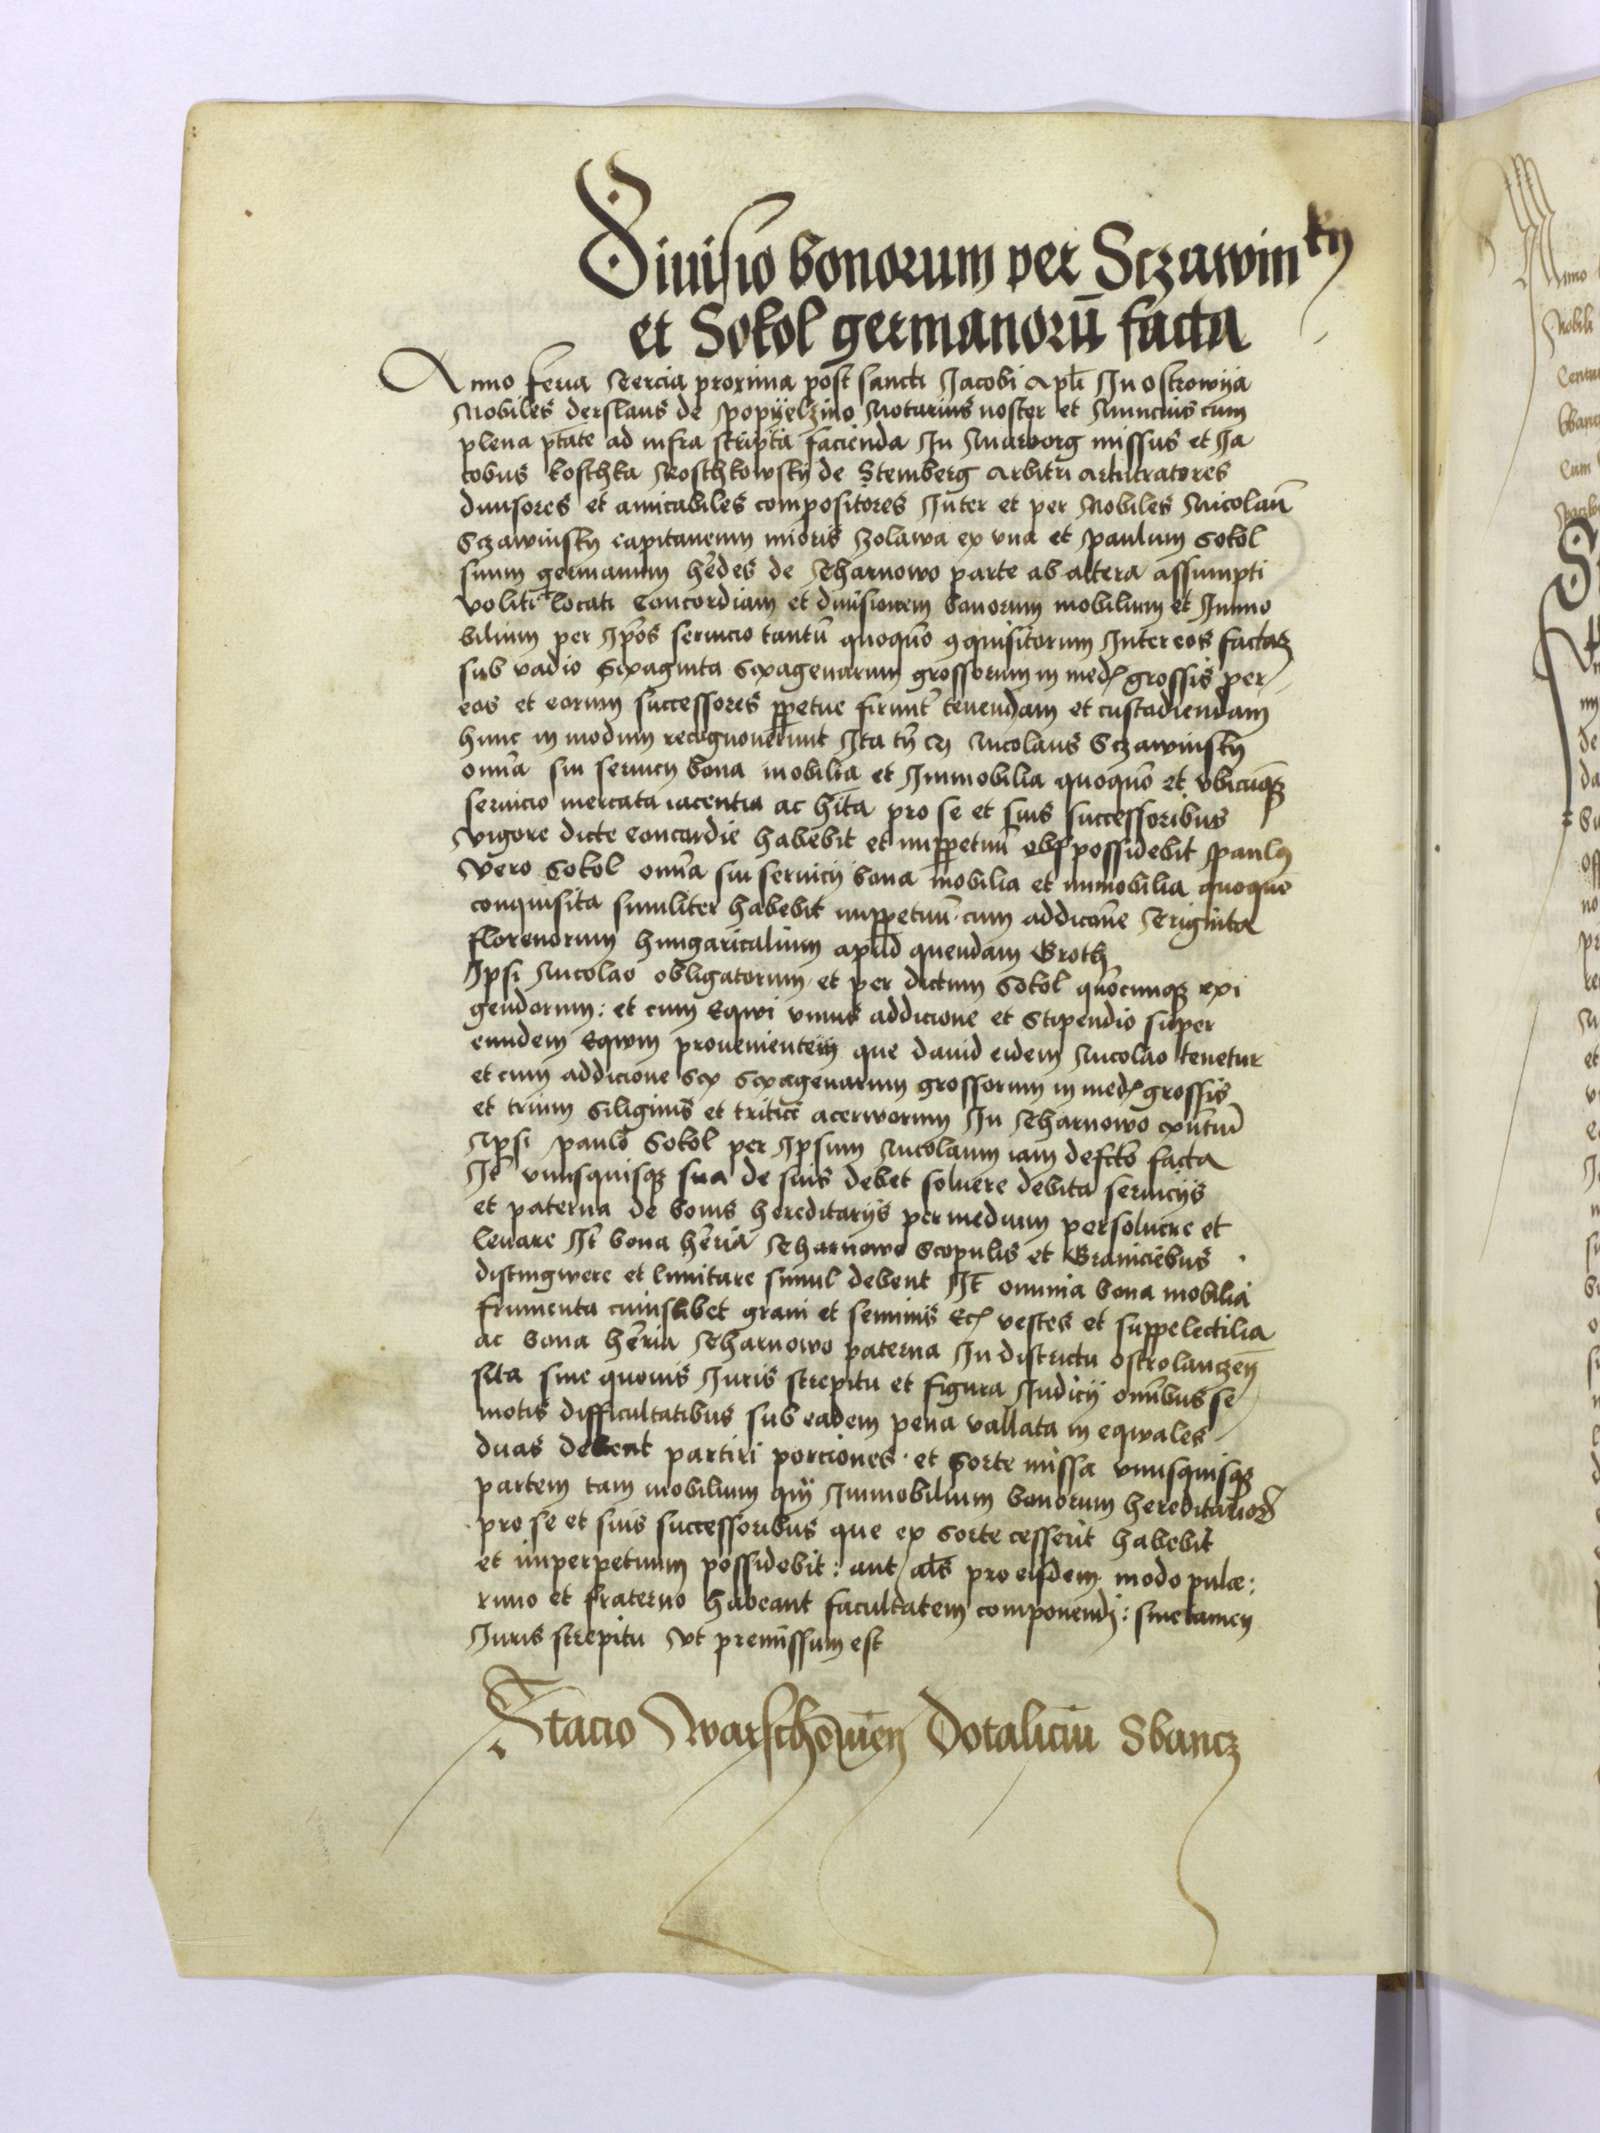 Diuisio bonorum per Sczawinsky
et Sokol germanorū facta
Anno feria Tercia proxima post sancti Jacobi Apli In Ostrowya
Nobiles derslaus de popyelzino Notarius noster et Nuncius cum
plena ptate ad infra scripta facienda In Marborg missus et Ja
cobus koschka de Stemberg Arbitri Arbitratores
diuisores et amicabiles compositores Inter et per Nobiles Nicolaū
Sczawinsky capitaneum Zolawa ex vna et paulum Sokol
suum germanum hēdes de Tharnowo parte ab altera assumpti
locati Concordiam et diuisionem bonorum mobilium et Immo
bilium per Ip̄os seruicio tantū quoquō 9quisitorum Inter eos factaz
sub vadio Sexaginta Sexagenarum grossorum in med grossis per
eos et eorum successores ppetue tenendam et custodiendam
hunc in modum recognouerunt Ita Nicolaus Sczawinsky
omā sui seruicij bona mobilia et Immobilia quoquō et vbicūqz
seruicio mercata iacentia ac hita pro se et suis successoribus
Vigore dicte Concordie habebit et imppetuū possidebit paulus
Vero Sokol omā sui seruicij bona mobilia et immobilia quoque
conquisita similiter habebit imppetuū cum addicōne Triginta
florenorum hungaricalium apud quendam Groth
Ipsi Nicolao obligatorum et per dictum Sokol quōcunqz exi
gendorum: et cum Eqwi vnius addicione et Stipendio super
eundem Eqwm prouenientem que dauid eidem Nicolao tenetur
et cum addicione Sex Sexagenarum grossorum in med grossis
et trium Siliginis et tritici acerworum In Tharnowo
Ipsi paulo Sokol per Ipsum Nicolaum iam facta
It vnusquisqz sua de suis debet soluere debita seruicijs
et paterna de bonis hereditarijs per medium persoluere et
leuare It bona hēria Tharnowo Scopulis et Graniciebus
distingwere et limitare simul debent It omnia bona mobilia
frumenta cuiuslibet grani et seminis Ec vestes et suppelectilia
ac bona hēria Tharnowo paterna In districtu Ostrolanczen̄
sita sine quouis Juris strepitu et figura Judicij omībus se
motis difficultatibus sub eadem pena vallata in eqwales
duas debent partiri porciones et sorte missa vnusquisqz
partem tam mobilium qm̄ Immobilium bonorum hereditariorū
pro se et suis successoribus que ex sorte cesserit habebit
et imperpetuum possidebit: aut als pro eisdem modo
et fraterno habeant facultatem componendi: sine tamen
Juris strepitu Vt premissum est
Stacio Warschouien̄ Dotaliciū Sbancz